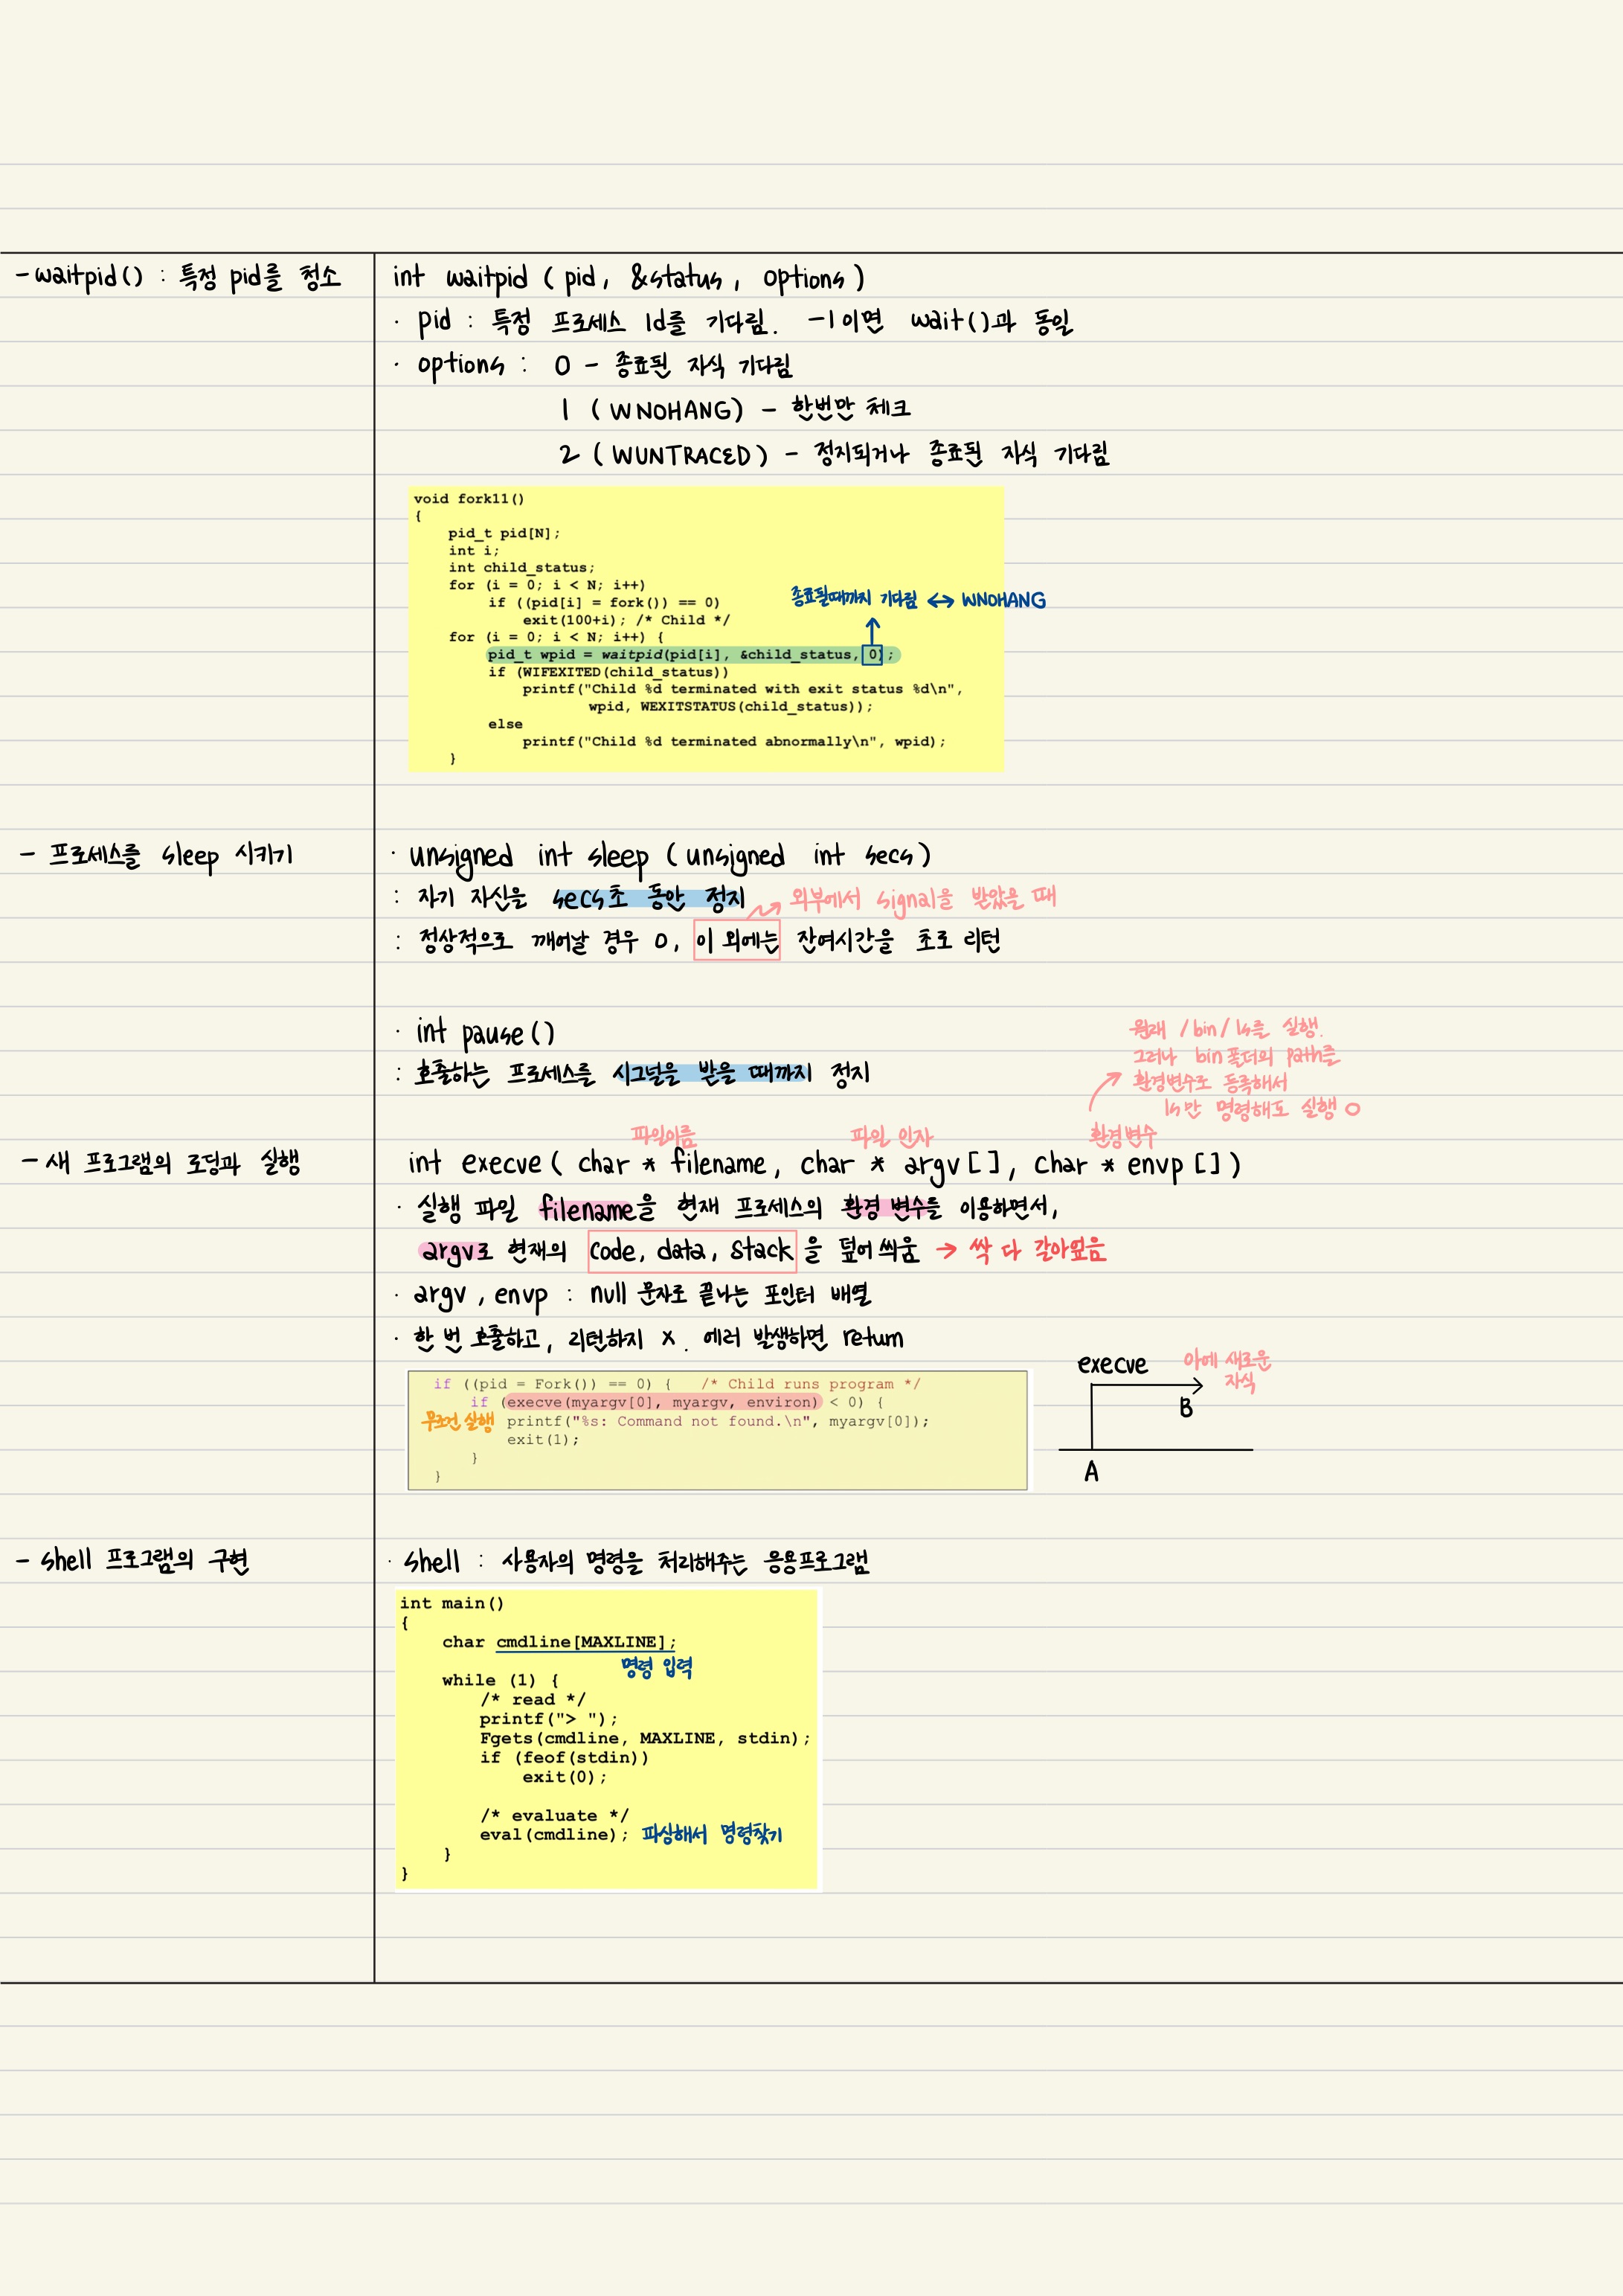 - waitpid() : 특정 pid를 청소
int waitpid ( pid, &status, options )
· pid : 특정 프로세스 Id를 기다림. -1이면 wait()과 동일
· options : 0 - 종료된 자식 기다림
1 ( WNOHANG) - 한번만 체크
2 ( WUNTRACED) - 정지되거나 종료된 자식 기다림
void fork11()
{
pid_t pid[N];
int i;
int child_status;
for (i = 0; i < N; i++)
종료될때까지 기다림 ↔ WNOHANG
if ((pid[i] = fork()) == 0)
exit(100+i); /* Child */
for (i = 0; i < N; i++) {
pid_t wpid = waitpid(pid[i], &child_status, 0);
if (WIFEXITED(child_status))
printf("Child %d terminated with exit status %d\n",
wpid, WEXITSTATUS(child_status));
else
printf("Child %d terminated abnormally\n", wpid);
}
- 프로세스를 sleep 시키기
· unsigned int sleep ( unsigned int secs )
: 자기 자신을 secs초 동안 정지
외부에서 signal을 받았을 때
: 정상적으로 깨어날 경우 0, 이 외에는 잔여시간을 초로 리턴
· int pause()
: 호출하는 프로세스를 시그널을 받을 때까지 정지
원래 /bin/ls를 실행.
그러나 bin 폴더의 path를
환경변수로 등록해서
ls만 명령해도 실행 O
파일이름 파일 인자 환경변수
- 새 프로그램의 로딩과 실행
int execve ( char * filename, char * argv [ ], char * envp [ ] )
· 실행 파일 filename을 현재 프로세스의 환경 변수를 이용하면서,
argv로 현재의 code, data, stack 을 덮어 씌움 → 싹 다 갈아엎음
· argv, envp : null 문자로 끝나는 포인터 배열
· 한 번 호출하고, 리턴하지 X. 에러 발생하면 return
if ((pid = Fork()) == 0) { /* Child runs program */
if (execve(myargv[0], myargv, environ) < 0) {
무조건 실행
printf("%s: Command not found.\n", myargv[0]);
exit(1);
}
}
execve
아예 새로운
자식
B
A
- shell 프로그램의 구현
· shell : 사용자의 명령을 처리해주는 응용프로그램
int main()
{
char cmdline[MAXLINE];
명령 입력
while (1) {
/* read */
printf("> ");
Fgets(cmdline, MAXLINE, stdin);
if (feof(stdin))
exit(0);
/* evaluate */
eval(cmdline); 파싱해서 명령찾기
}
}